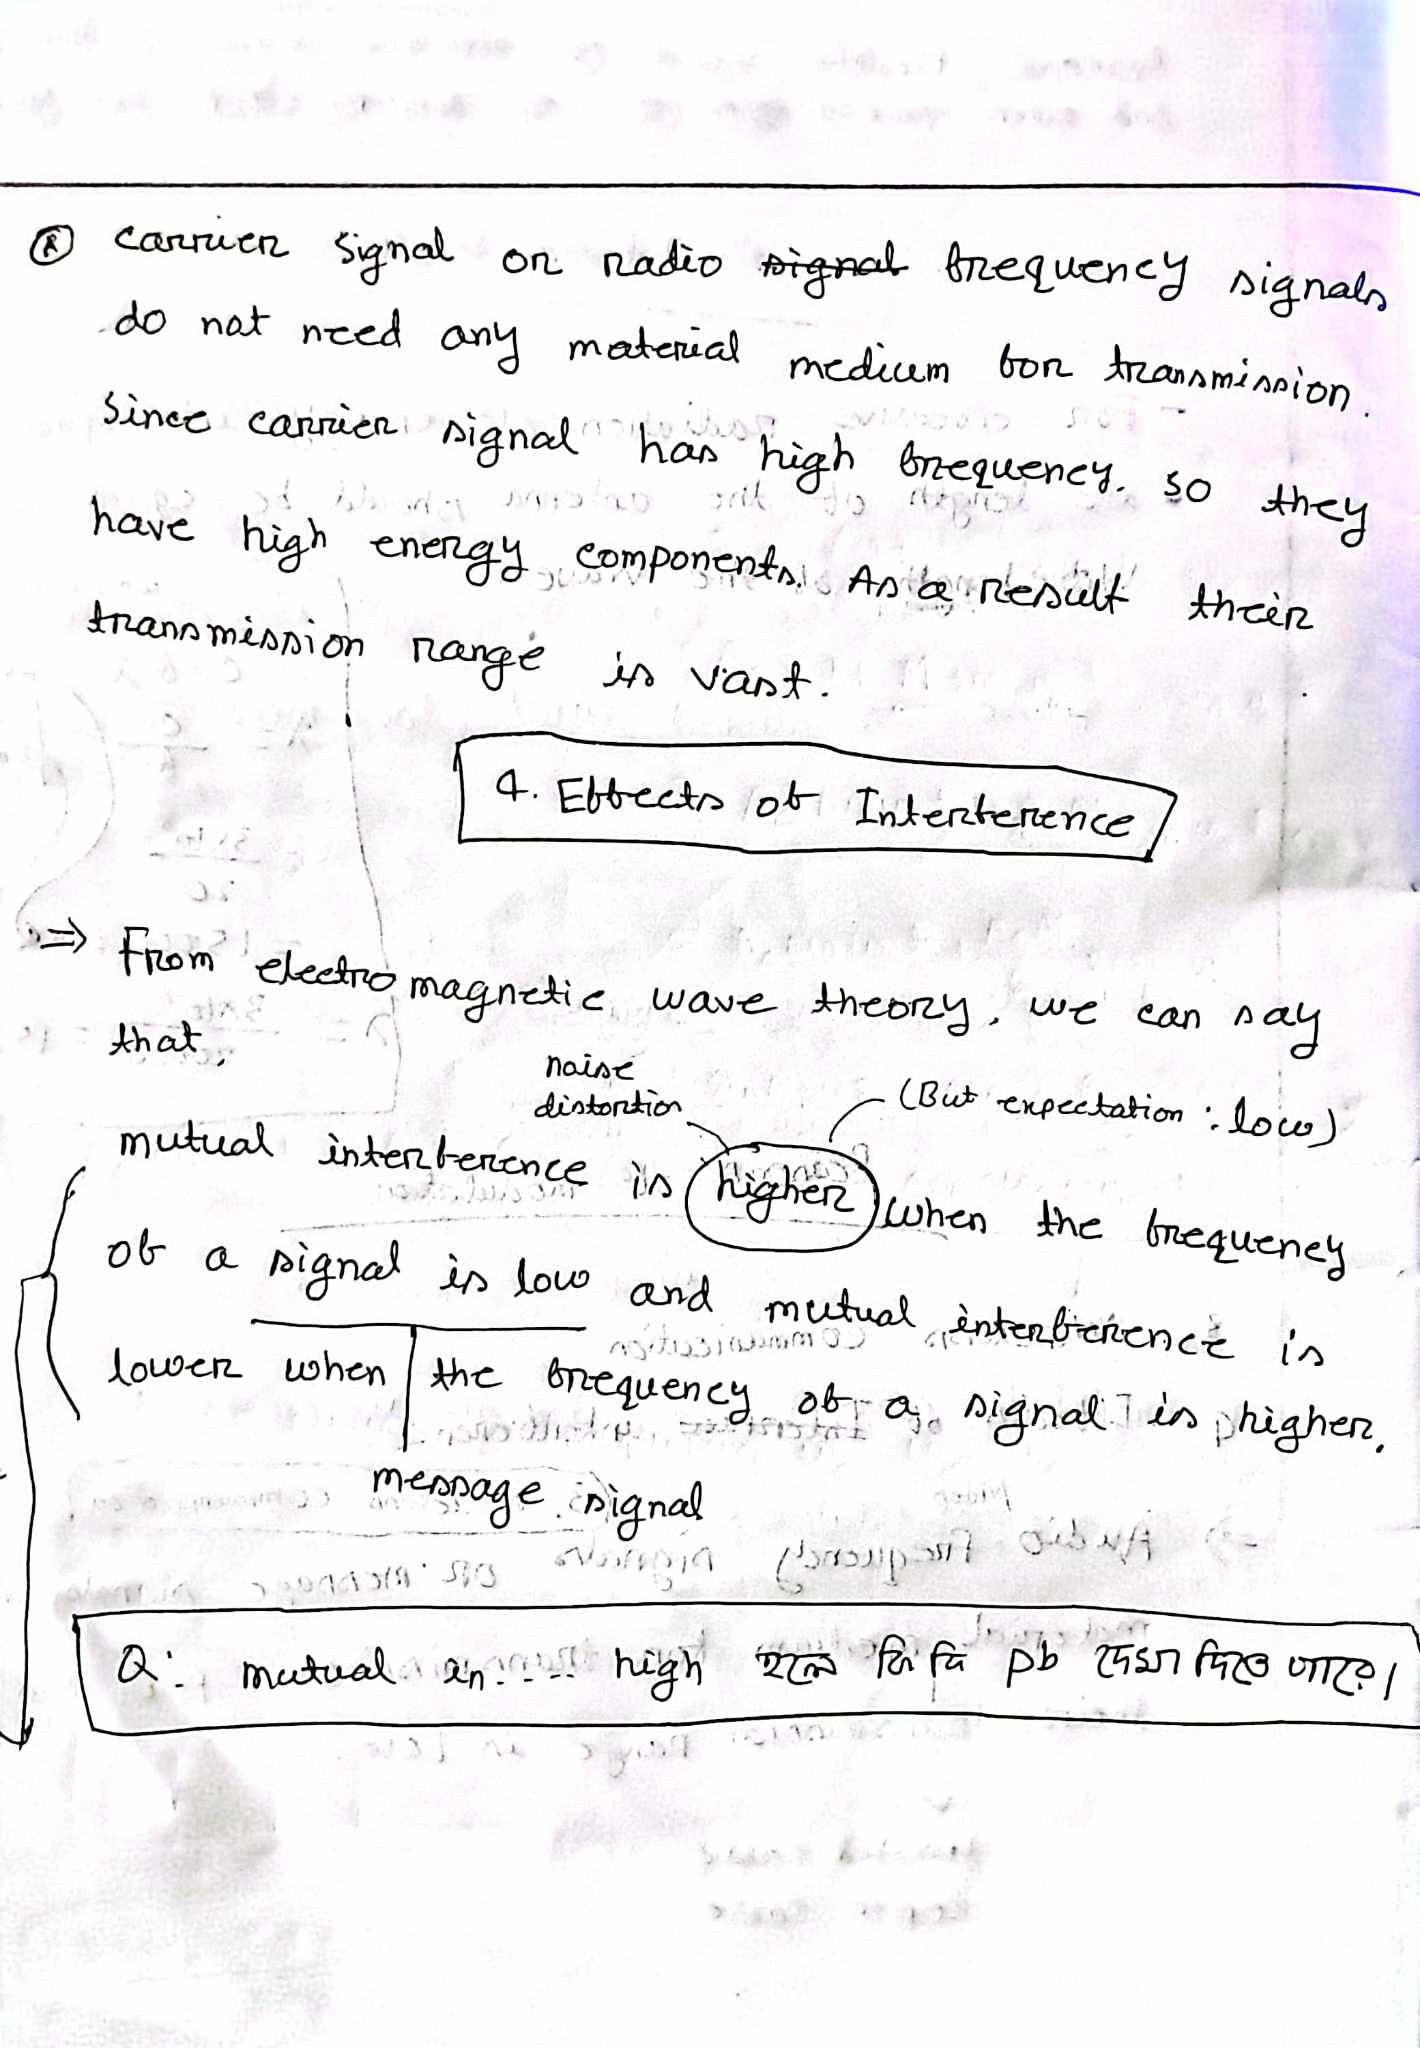 Ⓡ carrier signal or radio signal frequency signals
do not need any material medium for transmission.
Since carrier signal has high frequency. so they
have high energy components. As a result their
transmission range is vast.
4. Effects of Interference
⇒ From electromagnetic wave theory, we can say
that,
noise
distortion
(But expectation : low)
mutual interference is higher when the frequency
of a signal is low and mutual interference is
lower when the frequency of a signal is higher.
message signal
Q: mutual in.... high হলে কি কি pb দেখা দিতে পারে।